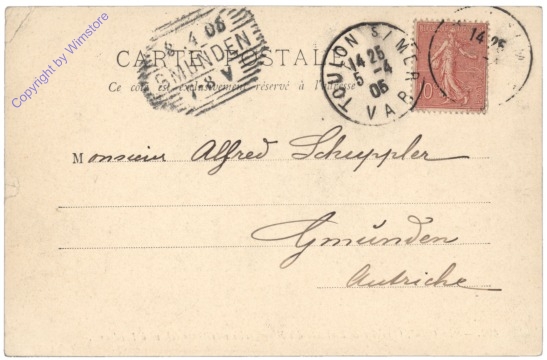 Copyright by Wimstore
8 4 06
GMUNDEN
CARTE POSTALE
Ce côté est exclusivement réservé à l'adresse
TOULON S/MER
14 25
5 -4
06
VAR
10
14 25
Monsieur Alfred Schuppler
Gmünden
Autriche